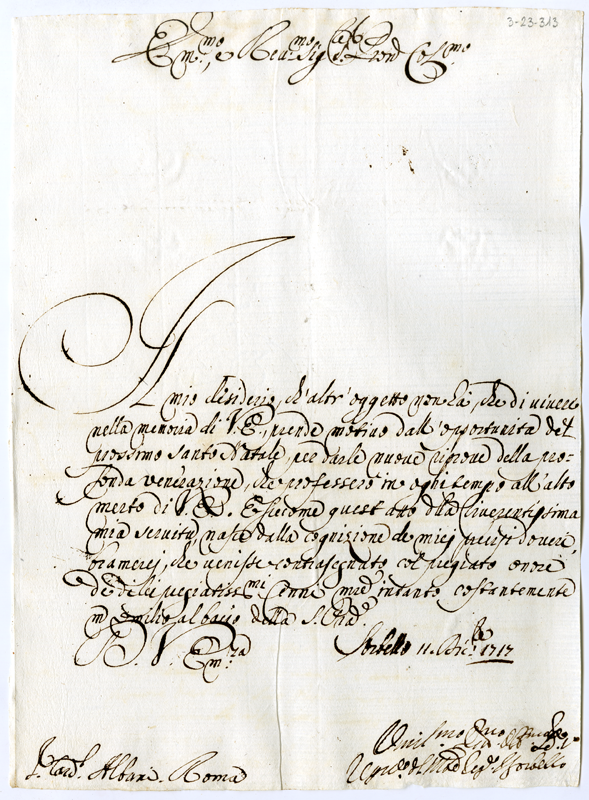 3-23-313
Em.mo, e Reu.mo Sig.r Pron Col.mo
Il mio desiderio, ch'altr'oggetto non hà, che di uiuere
nella memoria di V.E., prende motiuo dall'opportunità del
prossimo Santo Natale, per darle nuoue riproue della pro=
fonda venerazione, che professerò in ogni tempo all'alto
merito di V.E. E siccome quest'atto della riuerentissima
mia seruitù, nasce dalla cognizione de miei precisi doueri,
bramerei, che uenisse contrasegnato col pregiato onore
de di lei pregiatiss.mi cenni, mentre intanto costantemente
m'umilio al bacio della S. Porpora
D. V. Em.za
Sorbello 11. Dic.bre 1717
S.r Card.l Albani. Roma
Umil.mo
Sorbello